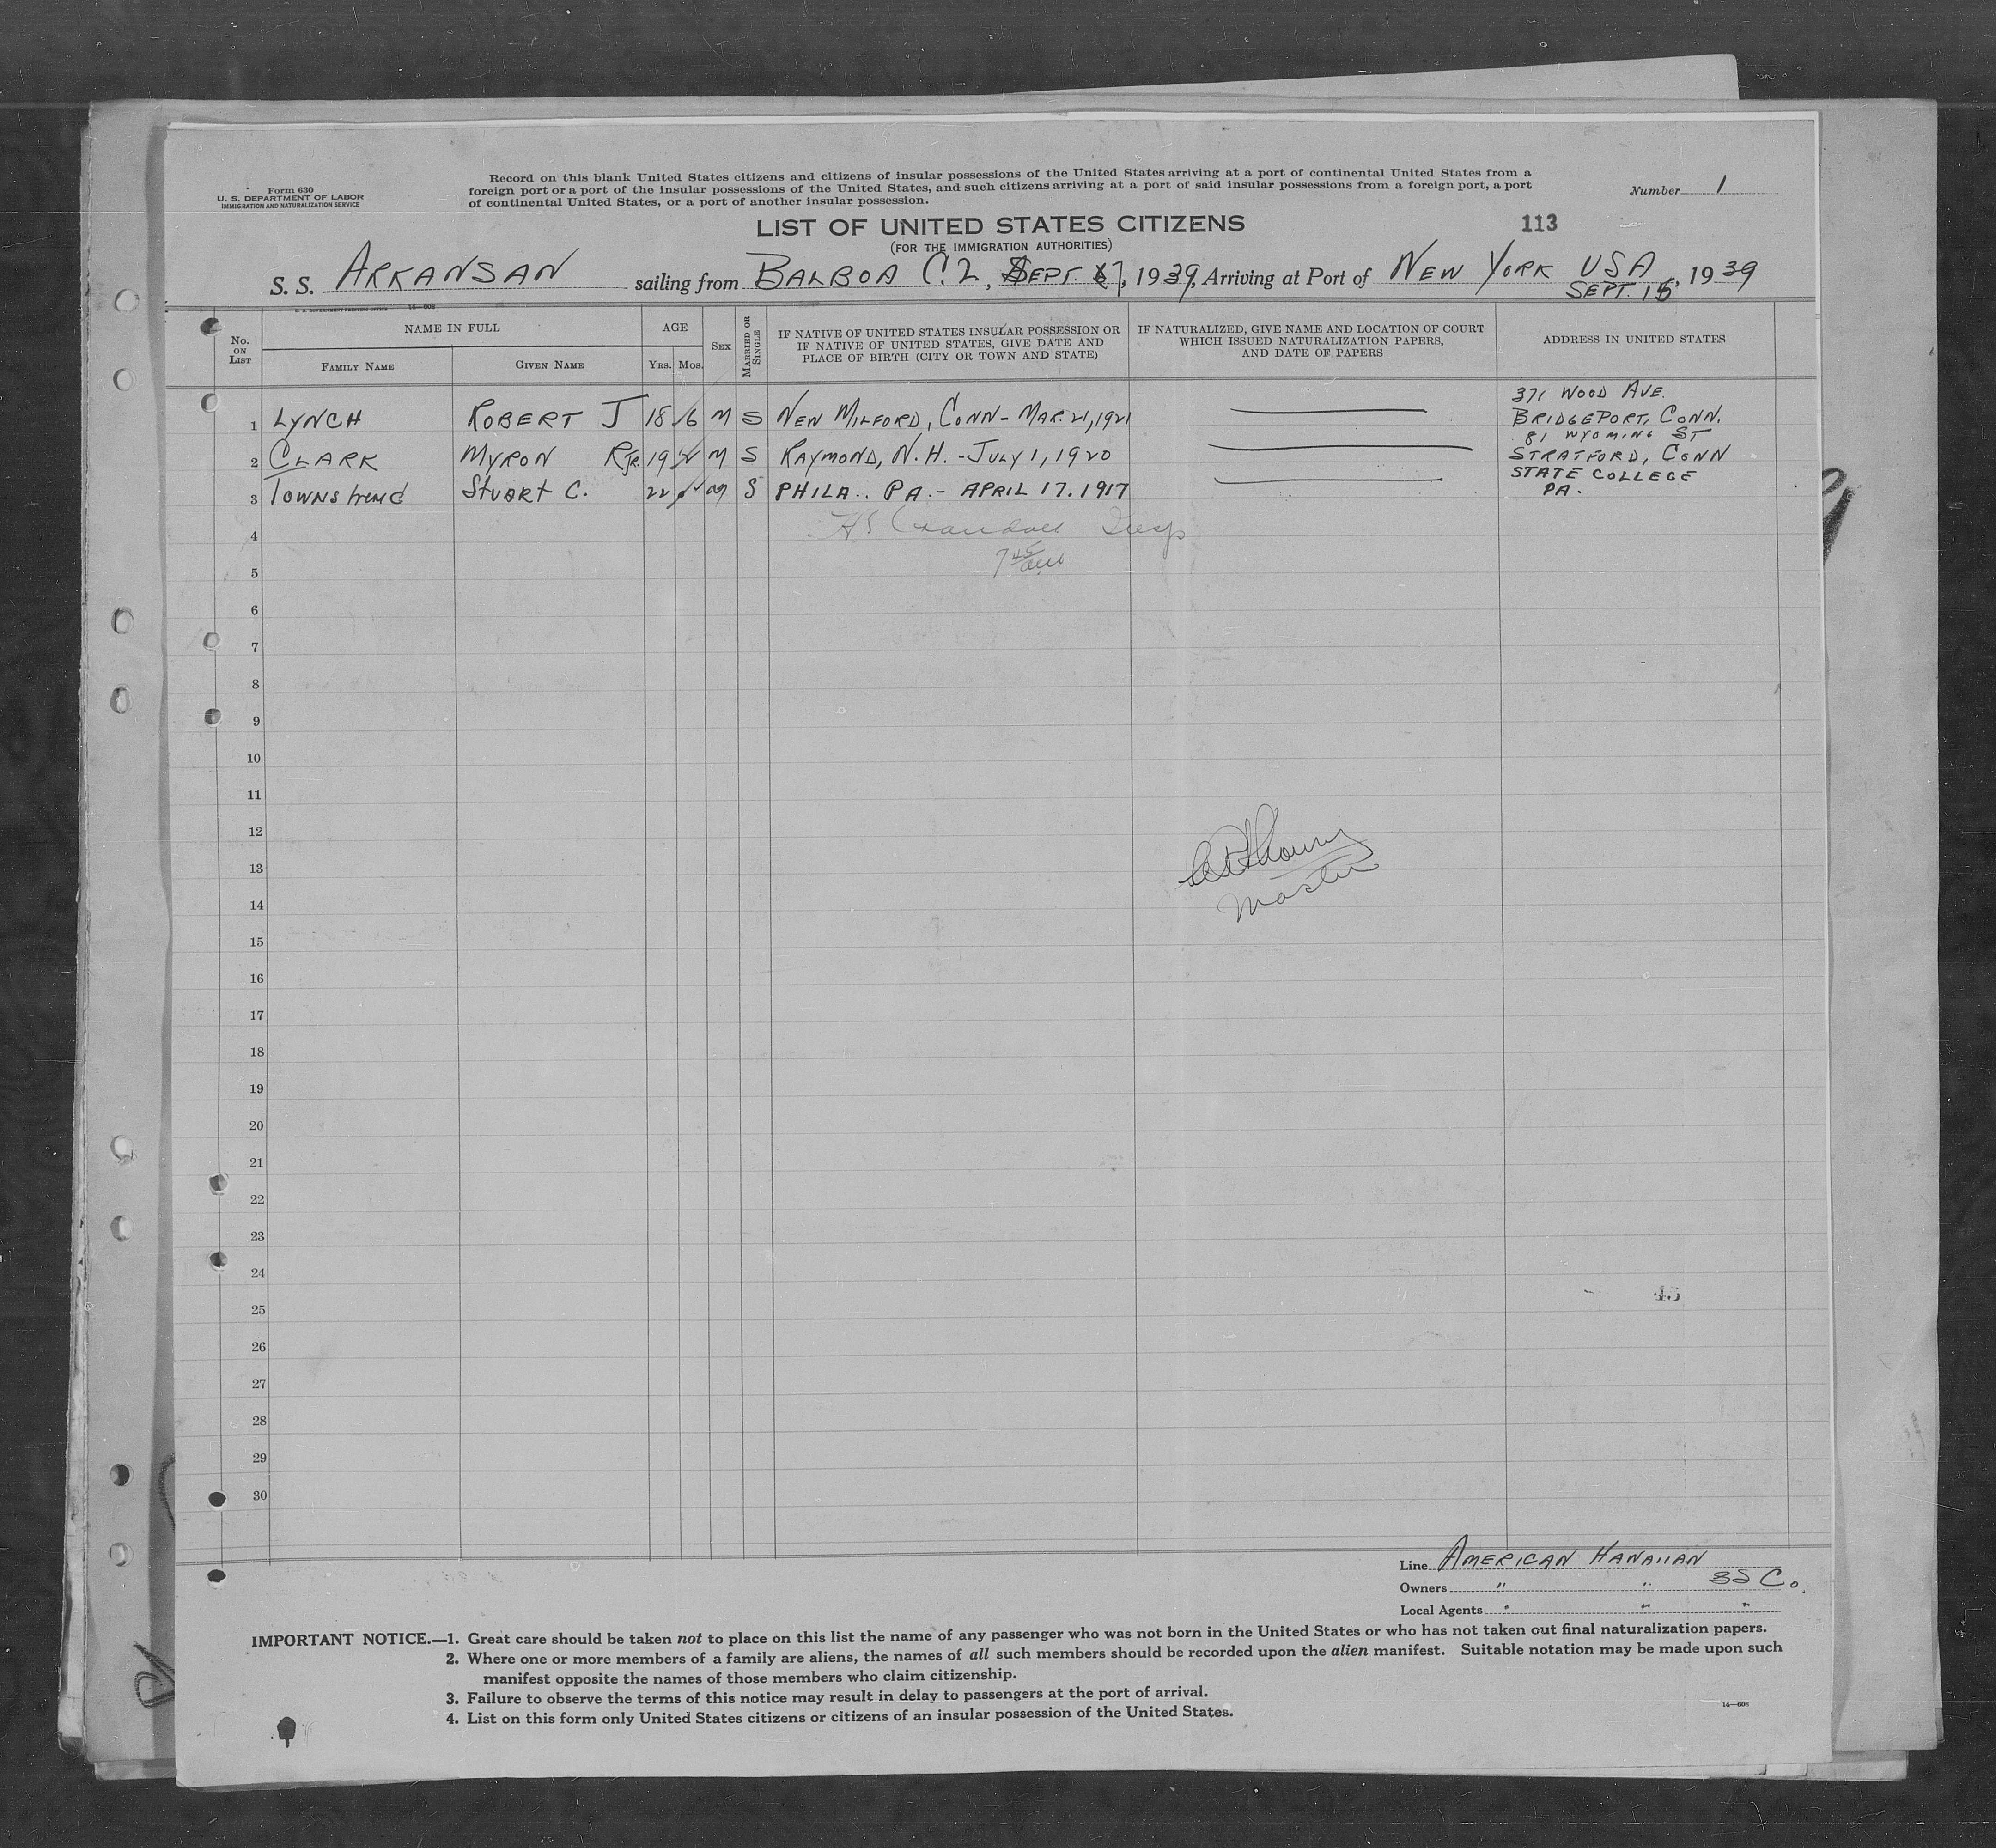 Form 630
U. S. DEPARTMENT OF LABOR
IMMIGRATION AND NATURALIZATION SERVICE
Record on this blank United States citizens and citizens of insular possessions of the United States arriving at a port of continental United States from a
foreign port or a port of the insular possessions of the United States, and such citizens arriving at a port of said insular possessions from a foreign port, a port
of continental United States, or a port of another insular possession.
Number 1
LIST OF UNITED STATES CITIZENS
113
(FOR THE IMMIGRATION AUTHORITIES)
S. S. ARKANSAN sailing from BALBOA C.Z, SEPT. 7, 1939, Arriving at Port of NEW YORK USA SEPT. 15, 1939
U. S. GOVERNMENT PRINTING OFFICE 14—608
No. ON LIST
NAME IN FULL
FAMILY NAME
GIVEN NAME
AGE
YRS. MOS.
SEX
MARRIED OR SINGLE
IF NATIVE OF UNITED STATES INSULAR POSSESSION OR
IF NATIVE OF UNITED STATES, GIVE DATE AND
PLACE OF BIRTH (CITY OR TOWN AND STATE)
IF NATURALIZED, GIVE NAME AND LOCATION OF COURT
WHICH ISSUED NATURALIZATION PAPERS,
AND DATE OF PAPERS
ADDRESS IN UNITED STATES
1 LYNCH ROBERT J 18 6 M S NEW MILFORD, CONN - MAR. 21, 1921 371 WOOD AVE. BRIDGEPORT, CONN.
2 CLARK MYRON R JR. 19 M S RAYMOND, N.H. - JULY 1, 1920 81 WYOMING ST STRATFORD, CONN
3 TOWNSHEND STUART C. 22 M S PHILA., PA. - APRIL 17. 1917 STATE COLLEGE PA.
4 Crandall Insp
5 7 45 am
6
7
8
9
10
11
12
13
Master
14
15
16
17
18
19
20
21
22
23
24
45
25
26
27
28
29
30
Line AMERICAN HAWAIIAN
Owners " " SS Co.
Local Agents " " "
IMPORTANT NOTICE.—1. Great care should be taken not to place on this list the name of any passenger who was not born in the United States or who has not taken out final naturalization papers.
2. Where one or more members of a family are aliens, the names of all such members should be recorded upon the alien manifest. Suitable notation may be made upon such
manifest opposite the names of those members who claim citizenship.
3. Failure to observe the terms of this notice may result in delay to passengers at the port of arrival.
4. List on this form only United States citizens or citizens of an insular possession of the United States.
14—608